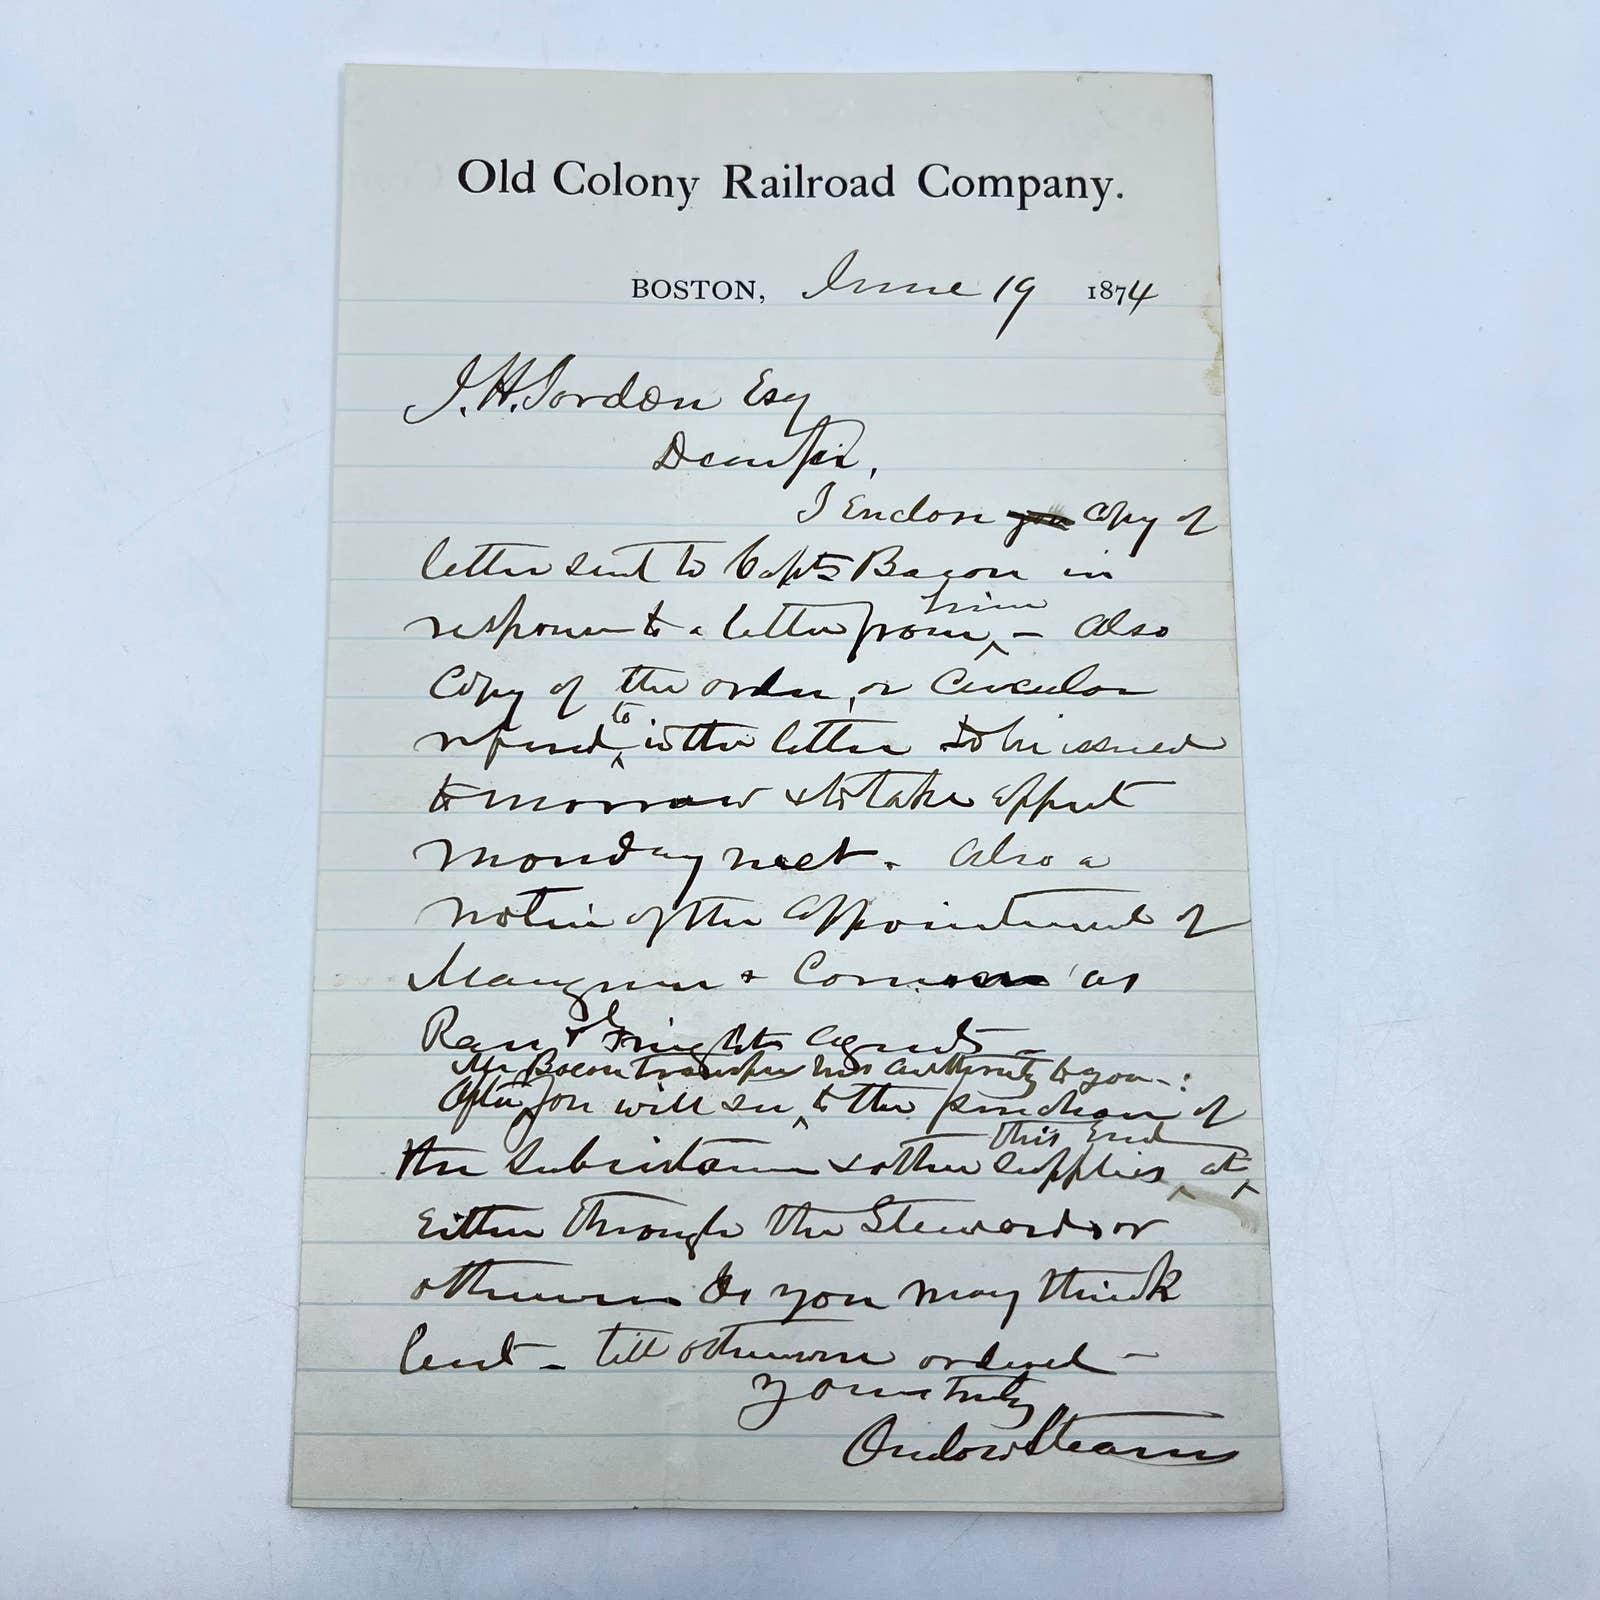 Old Colony Railroad Company.
BOSTON, June 19 1874
J. H. Jordan Esq
Dear Sir,
I Enclose you Copy of
letter sent to Capt Bacon in
response to a letter from him, - Also
Copy of the order, or Circular
referred to in the letter to be issued
tomorrow & to take effect
Monday next. Also a
notice of the Appointment of
&
as
& Freight Agents -
After Mr Bacon transfers his authority to you -:
you will see to the purchase of
the Subsistence & other Supplies at this End
Either through the Stewards or
otherwise as you may think
best - till otherwise ordered -
Yours truly
Onslow Stearns